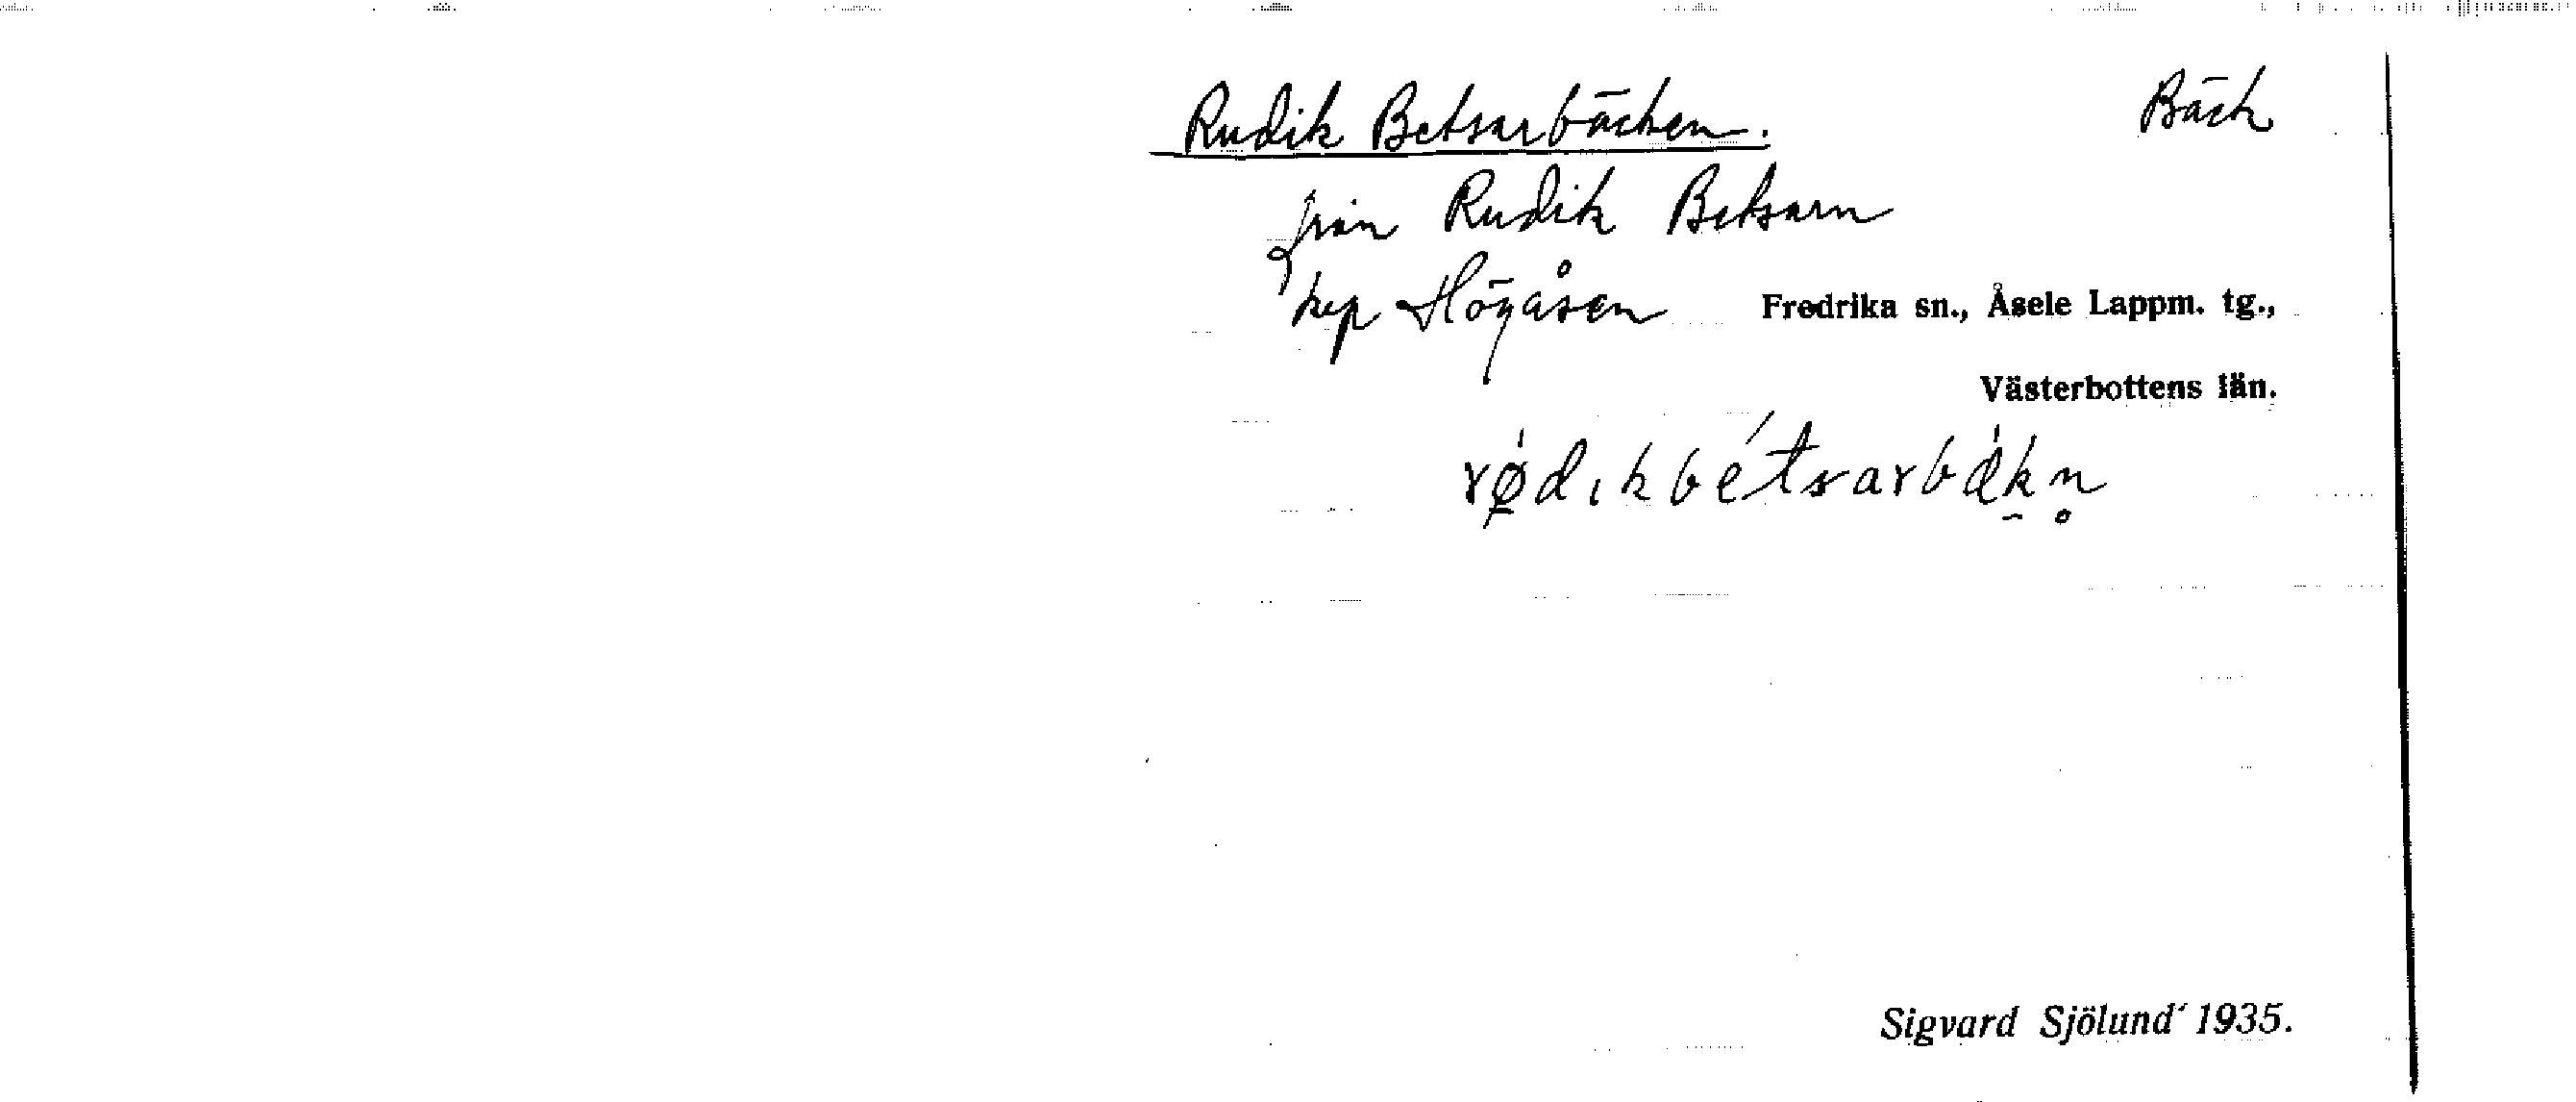 Rudik Betsarbäcken. Bäck
från Rudik Betsarn
Högåsen Fredrika sn., Åsele Lappm. tg.,
Västerbottens län.
Sigvard Sjölund 1935.